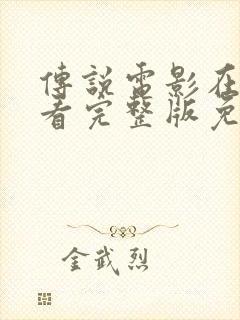 傳說電影在
看完整版免
金武烈